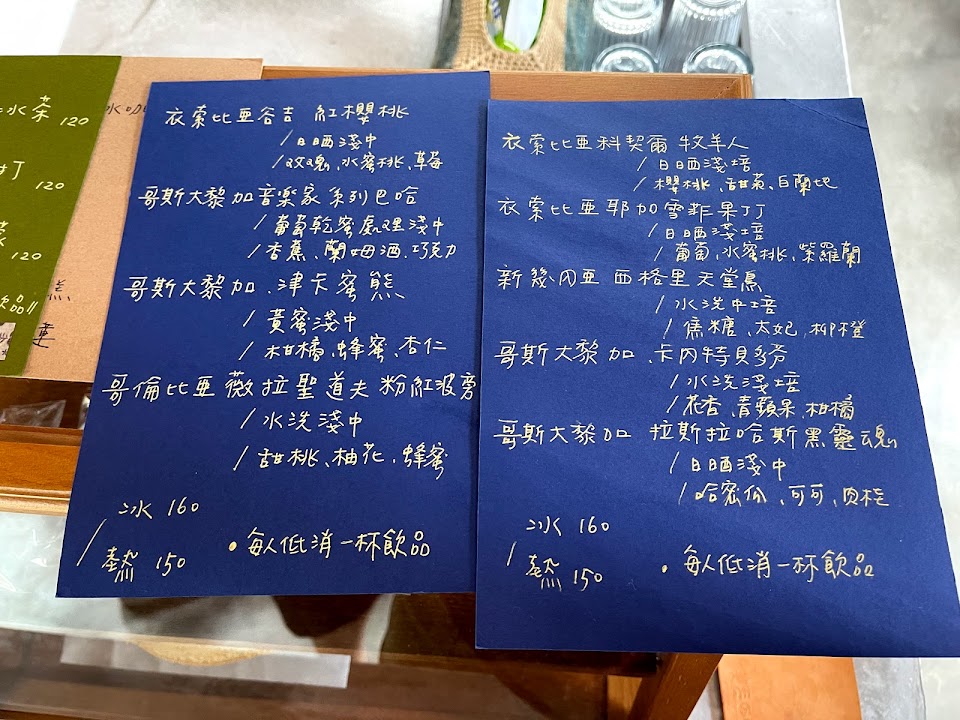 冰茶 120
120
120
飲品
冰
衣索比亞谷吉 紅櫻桃
/日晒淺中
/玫瑰、水蜜桃、草莓
哥斯大黎加音楽家系列巴哈
/葡萄乾蜜處理淺中
/香蕉、蘭姆酒、巧克力
哥斯大黎加、津卡蜜熊
/黃蜜淺中
/柑橘、蜂蜜、杏仁
哥倫比亞 薇拉聖道夫 粉紅波旁
/水洗淺中
/甜桃、柚花、蜂蜜
/冰 160
熱 150
•每人低消一杯飲品
衣索比亞科契爾 牧羊人
/日晒淺培
/櫻桃、甜菊、白蘭地
衣索比亞耶加雪菲果丁
/日晒淺培
/葡萄、水蜜桃、紫羅蘭
新幾內亞 西格里 天堂鳥
/水洗中培
/焦糖、太妃、柳橙
哥斯大黎加、卡內特貝多芬
/水洗淺培
/花香、青蘋果、柑橘
哥斯大黎加 拉斯拉哈斯黑靈魂
/日晒淺中
/哈密瓜、可可、肉桂
/冰 160
熱 150
•每人低消一杯飲品